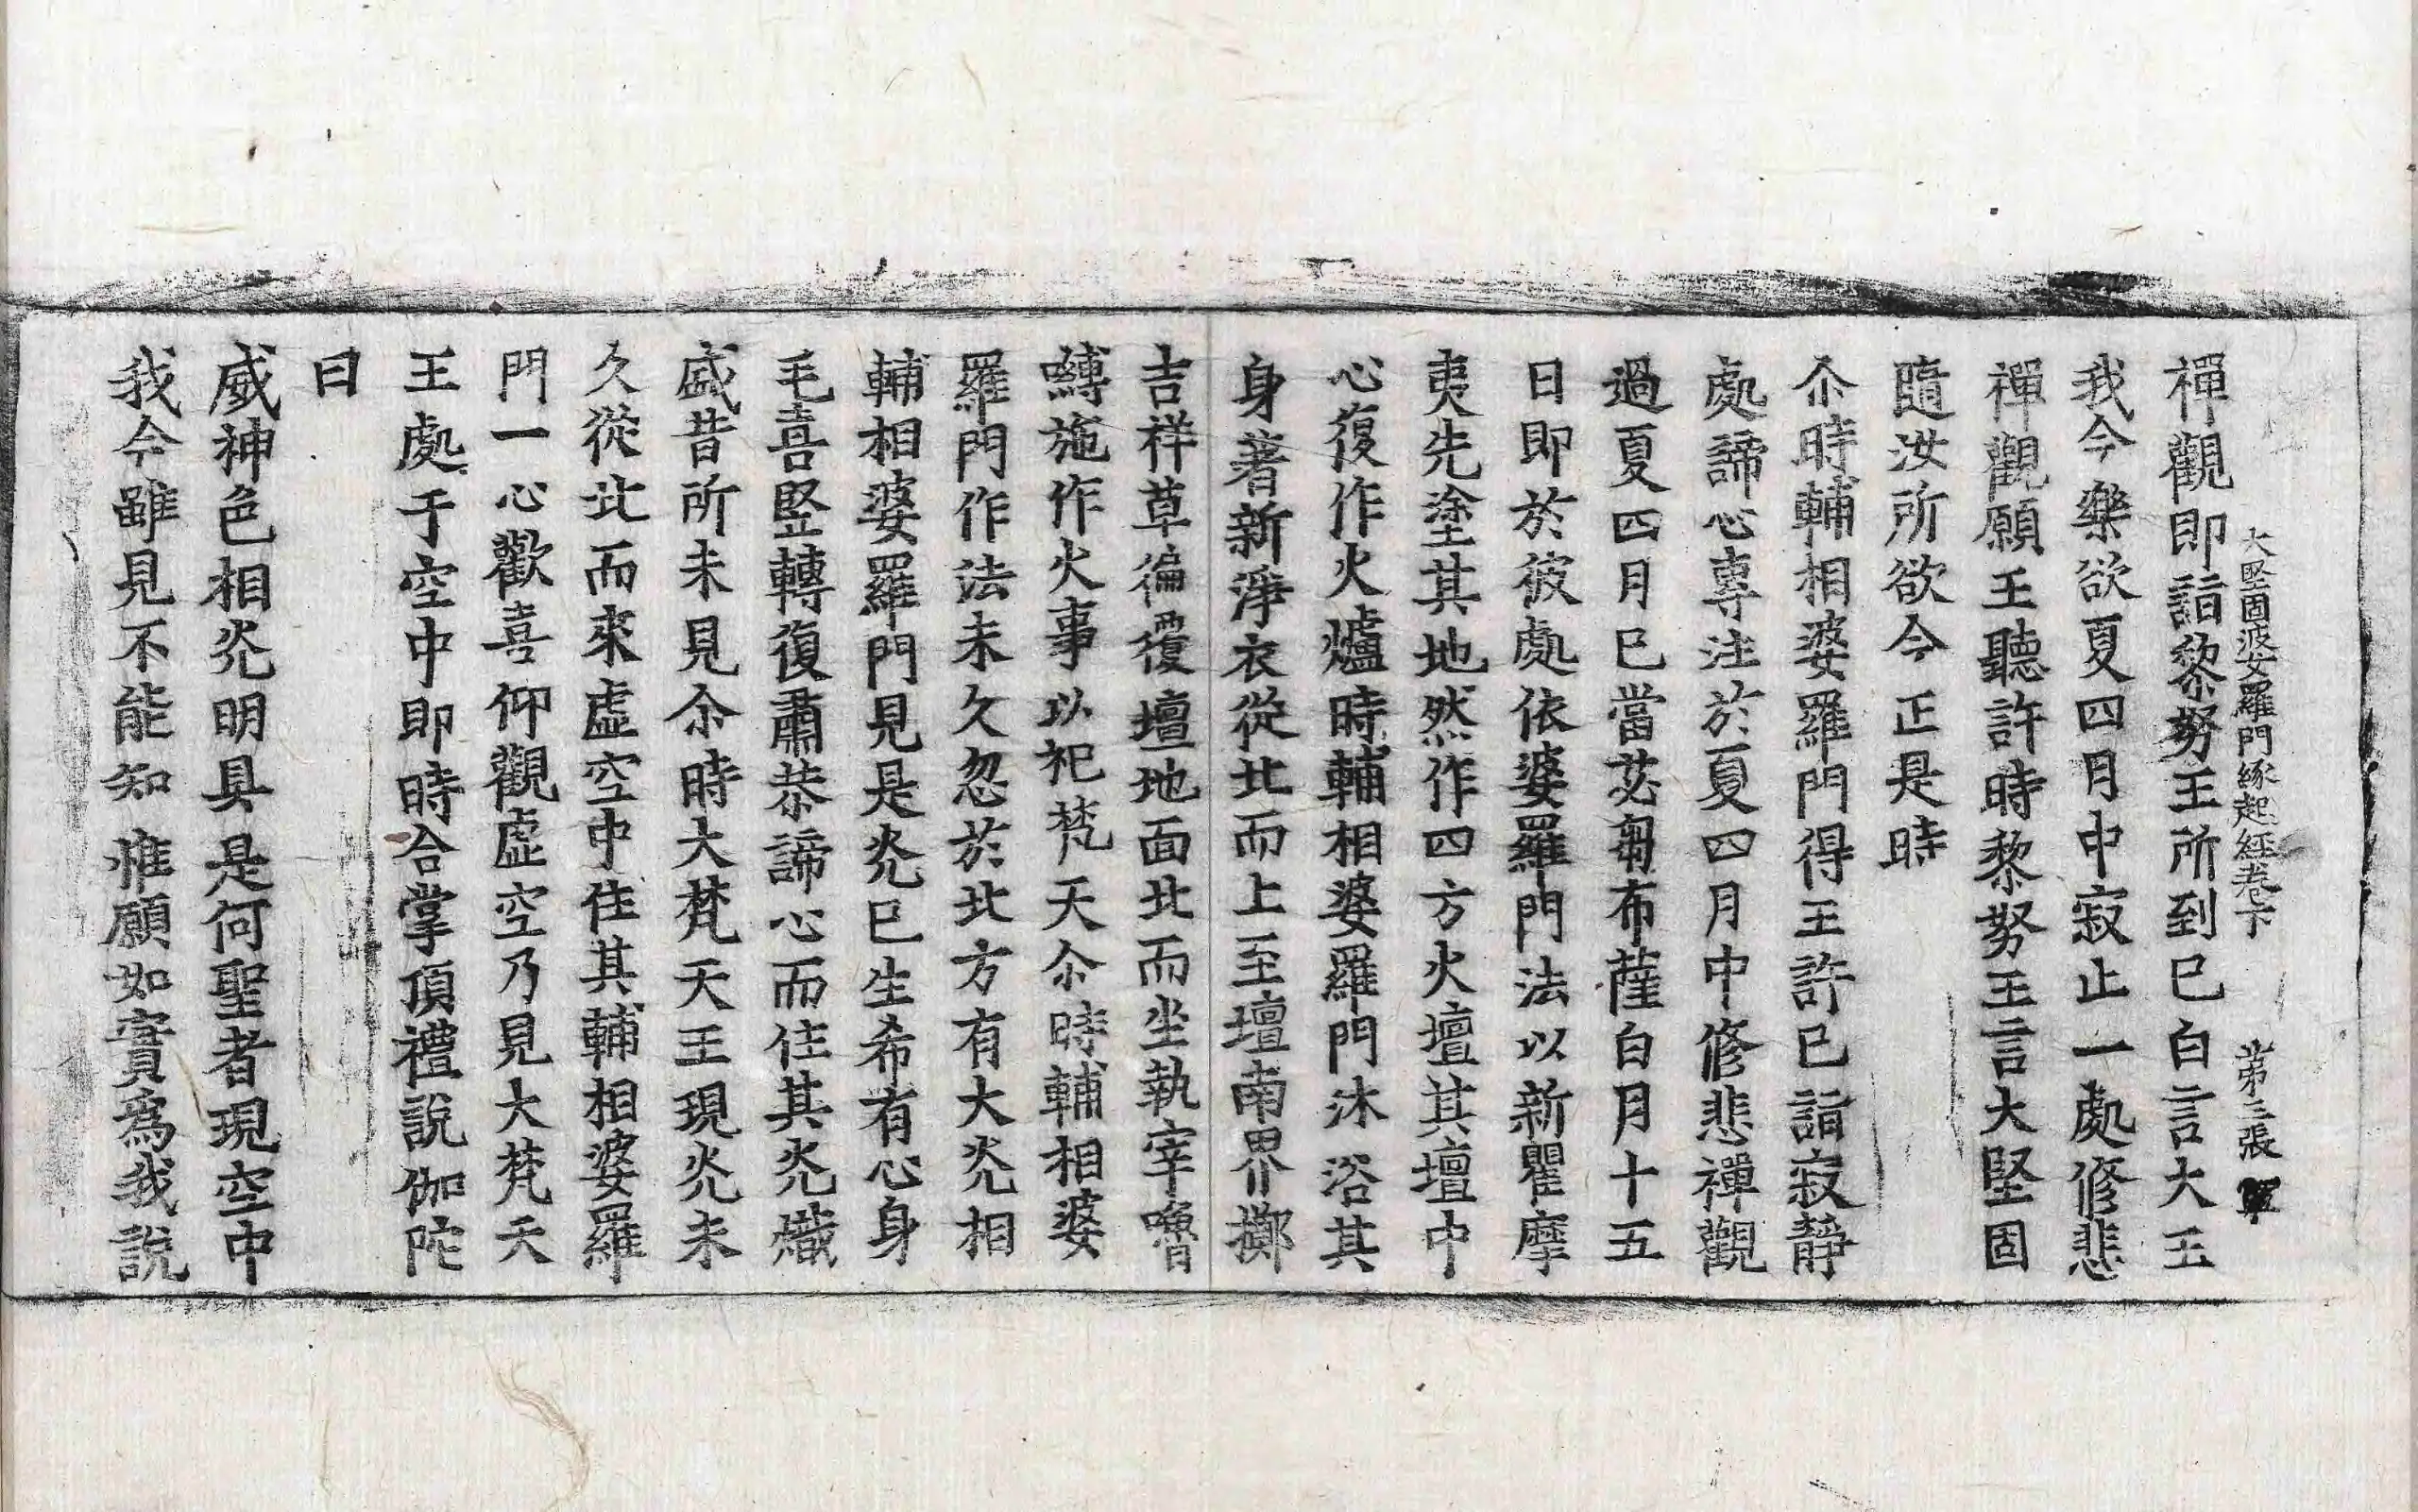 大堅固婆羅門緣起經卷下 第三張
禪觀即詣黎努王所到已白言大王
我今樂欲夏四月中寂止一處修悲
禪觀願王聽許時黎努王言大堅固
隨汝所欲今正是時
尒時輔相婆羅門得王許已詣寂靜
處諦心專注於夏四月中修悲禪觀
過夏四月已當苾芻布薩白月十五
日即於彼處依婆羅門法以新瞿摩
夷先塗其地然作四方火壇其壇中
心復作火爐時輔相婆羅門沐浴其
身著新淨衣從北而上至壇南界擲
吉祥草徧覆壇地面北而坐執宰嚕
嚩施作火事以祀梵天尒時輔相婆
羅門作法未久忽於北方有大灮相
輔相婆羅門見是灮已生希有心身
毛喜竪轉復肅恭諦心而住其灮熾
盛昔所未見尒時大梵天王現灮未
久從北而來虛空中住其輔相婆羅
門一心歡喜仰觀虛空乃見大梵天
王處于空中即時合掌頂禮說伽陀
曰
威神色相灮明具 是何聖者現空中
我今雖見不能知 惟願如實爲我說